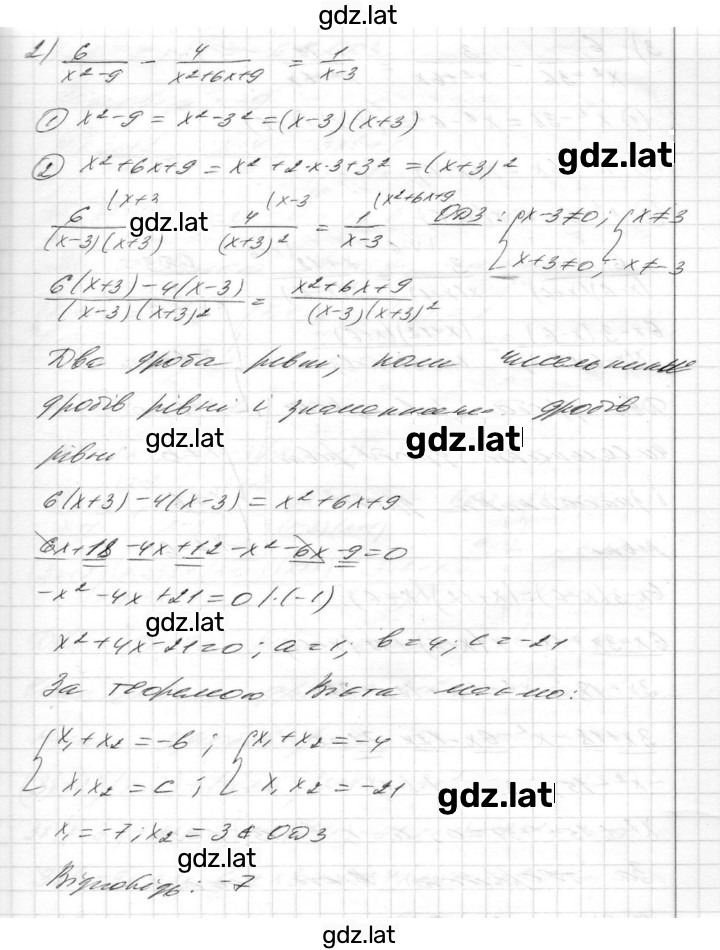 gdz.lat
2) 6/(x²-9) - 4/(x²+6x+9) = 1/(x-3)
① x²-9 = x²-3² = (x-3)(x+3)
② x²+6x+9 = x²+2·x·3+3² = (x+3)²
gdz.lat
(x+3 (x-3 (x²+6x+9
6/((x-3)(x+3)) 4/(x+3)² = 1/(x-3) ОДЗ: { x-3≠0; { x≠3
gdz.lat
x+3≠0; x≠-3
(6(x+3)-4(x-3))/((x-3)(x+3)²) = (x²+6x+9)/((x-3)(x+3)²)
Два дроба рівні, коли чисельники
дробів рівні і знаменники дробів
gdz.lat gdz.lat
рівні
6(x+3)-4(x-3) = x²+6x+9
6x+18-4x+12-x²-6x-9=0
-x²-4x+21=0 |·(-1)
gdz.lat
x²+4x-21=0; a=1; b=4; c=-21
За теоремою Вієта маємо:
{ x₁+x₂=-b; { x₁+x₂=-4
x₁x₂=c; x₁x₂=-21
gdz.lat
x₁=-7; x₂=3 ∉ ОДЗ
gdz.lat
Відповідь: -7
gdz.lat